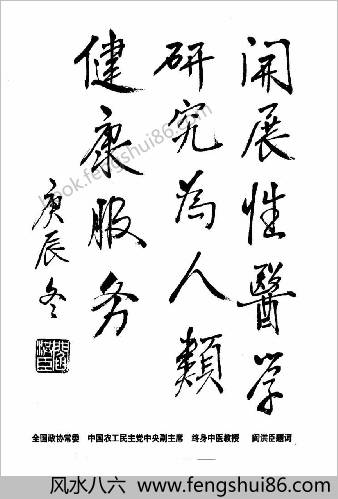 開展性醫学
研究為人類
健康服务
庚辰冬
全国政协常委 中国农工民主党中央副主席 终身中医教授 阎洪臣题词
book.fengshui86.com
风水八六 - www.fengshui86.com